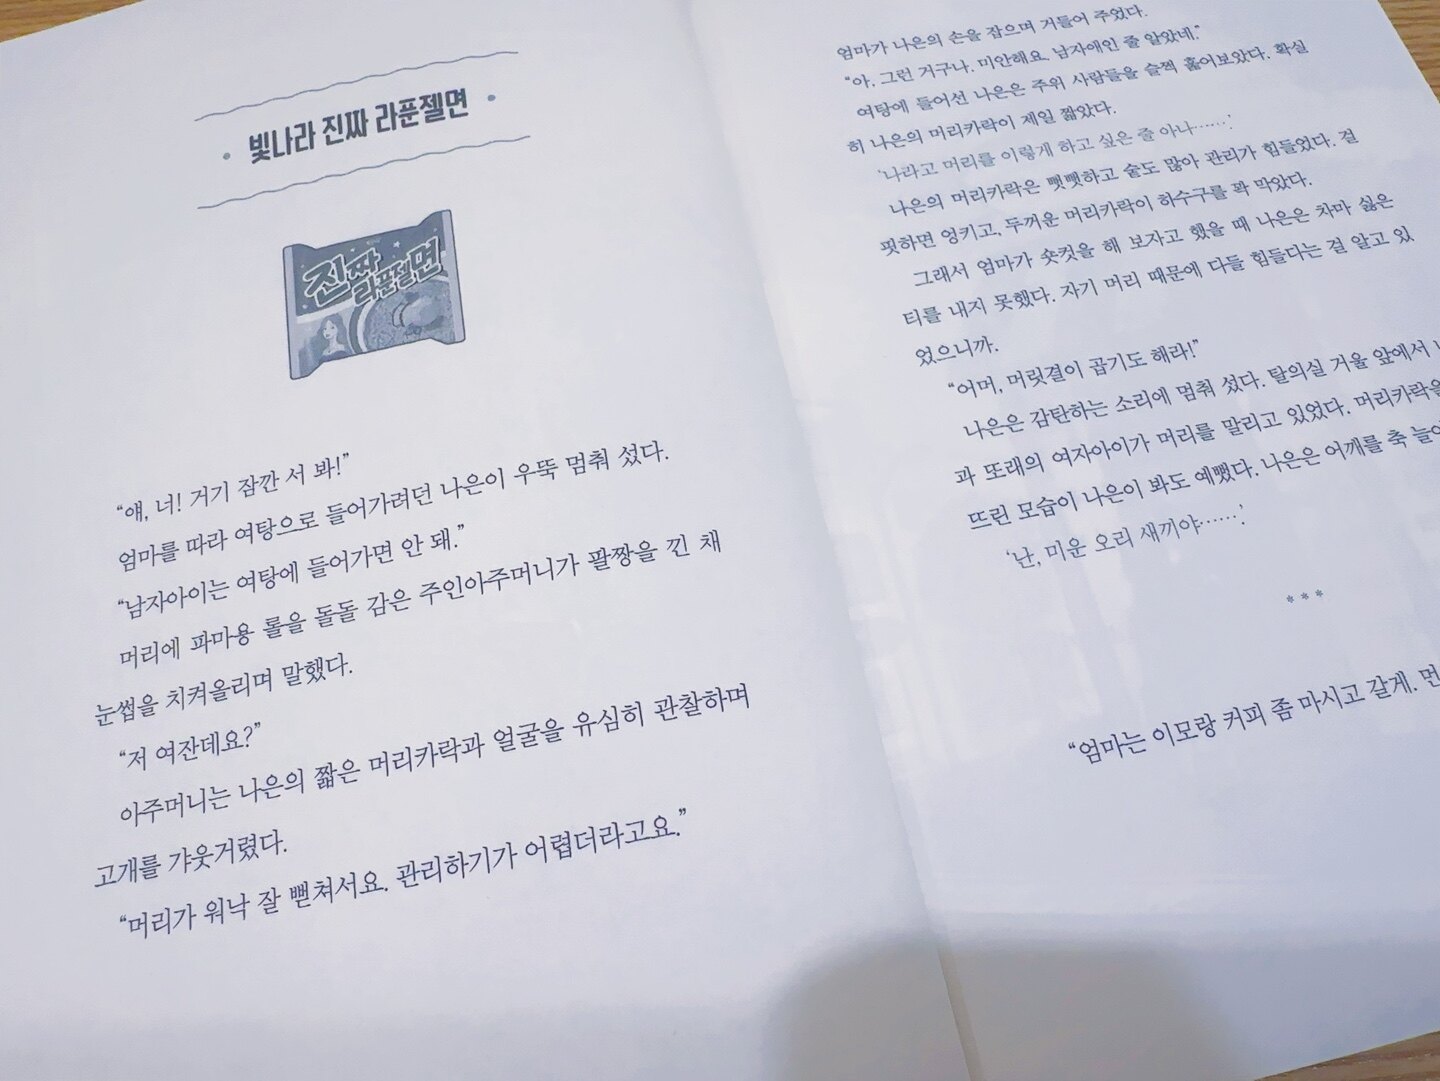 빛나라 진짜 라푼젤면
진짜
라푼젤면
“얘, 너! 거기 잠깐 서 봐!”
엄마를 따라 여탕으로 들어가려던 나은이 우뚝 멈춰 섰다.
“남자아이는 여탕에 들어가면 안 돼.”
머리에 파마용 롤을 돌돌 감은 주인아주머니가 팔짱을 낀 채
눈썹을 치켜올리며 말했다.
“저 여잔데요?”
아주머니는 나은의 짧은 머리카락과 얼굴을 유심히 관찰하며
고개를 갸웃거렸다.
“머리가 워낙 잘 뻗쳐서요. 관리하기가 어렵더라고요.”
엄마가 나은의 손을 잡으며 거들어 주었다.
“아, 그런 거구나. 미안해요. 남자애인 줄 알았네.”
여탕에 들어선 나은은 주위 사람들을 슬쩍 훑어보았다. 확실
히 나은의 머리카락이 제일 짧았다.
‘나라고 머리를 이렇게 하고 싶은 줄 아나……’
나은의 머리카락은 뻣뻣하고 숱도 많아 관리가 힘들었다. 걸
핏하면 엉키고, 두꺼운 머리카락이 하수구를 꽉 막았다.
그래서 엄마가 숏컷을 해 보자고 했을 때 나은은 차마 싫은
티를 내지 못했다. 자기 머리 때문에 다들 힘들다는 걸 알고 있
었으니까.
“어머, 머릿결이 곱기도 해라!”
나은은 감탄하는 소리에 멈춰 섰다. 탈의실 거울 앞에서
과 또래의 여자아이가 머리를 말리고 있었다. 머리카락을
뜨린 모습이 나은이 봐도 예뻤다. 나은은 어깨를 축
‘난, 미운 오리 새끼야……’.
***
“엄마는 이모랑 커피 좀 마시고 갈게. 먼